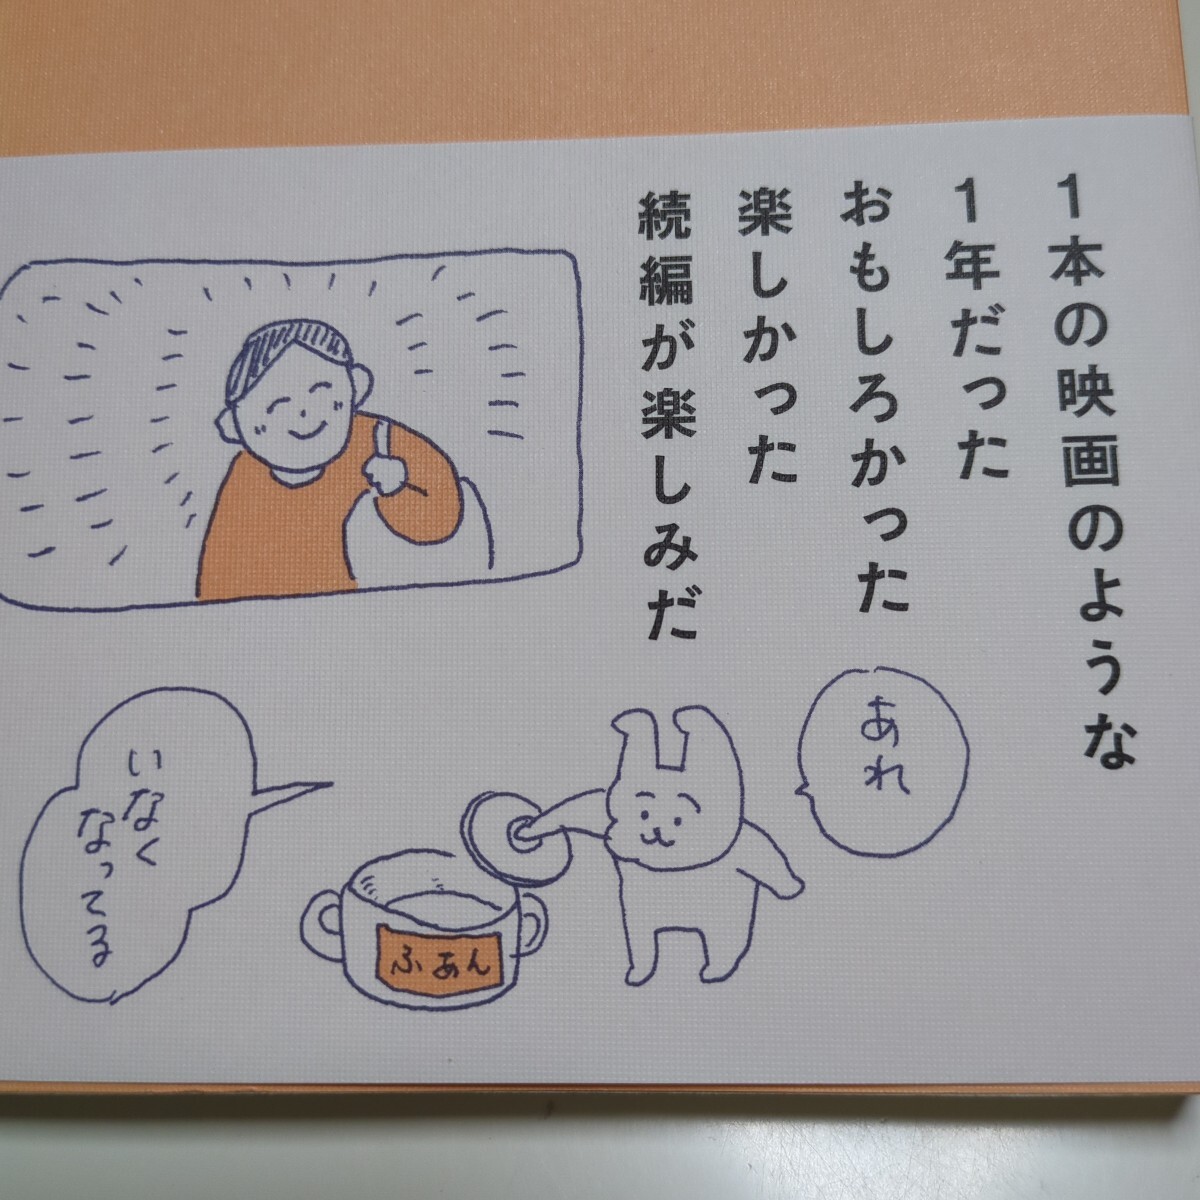 1本の映画のような
1年だった
おもしろかった
楽しかった
続編が楽しみだ
あれ
ふあん
いなく
なってる